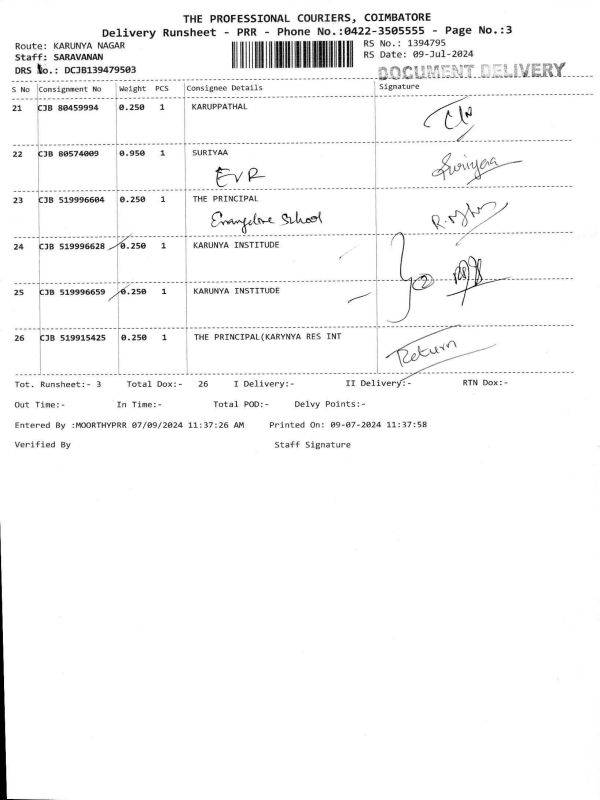 THE PROFESSIONAL COURIERS, COIMBATORE
Delivery Runsheet - PRR - Phone No.:0422-3505555 - Page No.:3
Route: KARUNYA NAGAR
RS No.: 1394795
Staff: SARAVANAN
RS Date: 09-Jul-2024
DRS No.: DCJB139479503
DOCUMENT DELIVERY
S No Consignment No Weight PCS Consignee Details Signature
21 CJB 80459994 0.250 1 KARUPPATHAL
22 CJB 80574009 0.950 1 SURIYAA
EVR Suriyaa
23 CJB 519996604 0.250 1 THE PRINCIPAL
School
24 CJB 519996628 0.250 1 KARUNYA INSTITUDE
2
25 CJB 519996659 0.250 1 KARUNYA INSTITUDE
26 CJB 519915425 0.250 1 THE PRINCIPAL(KARYNYA RES INT
Return
Tot. Runsheet:- 3 Total Dox:- 26 I Delivery:- II Delivery:- RTN Dox:-
Out Time:- In Time:- Total POD:- Delvy Points:-
Entered By :MOORTHYPRR 07/09/2024 11:37:26 AM Printed On: 09-07-2024 11:37:58
Verified By Staff Signature